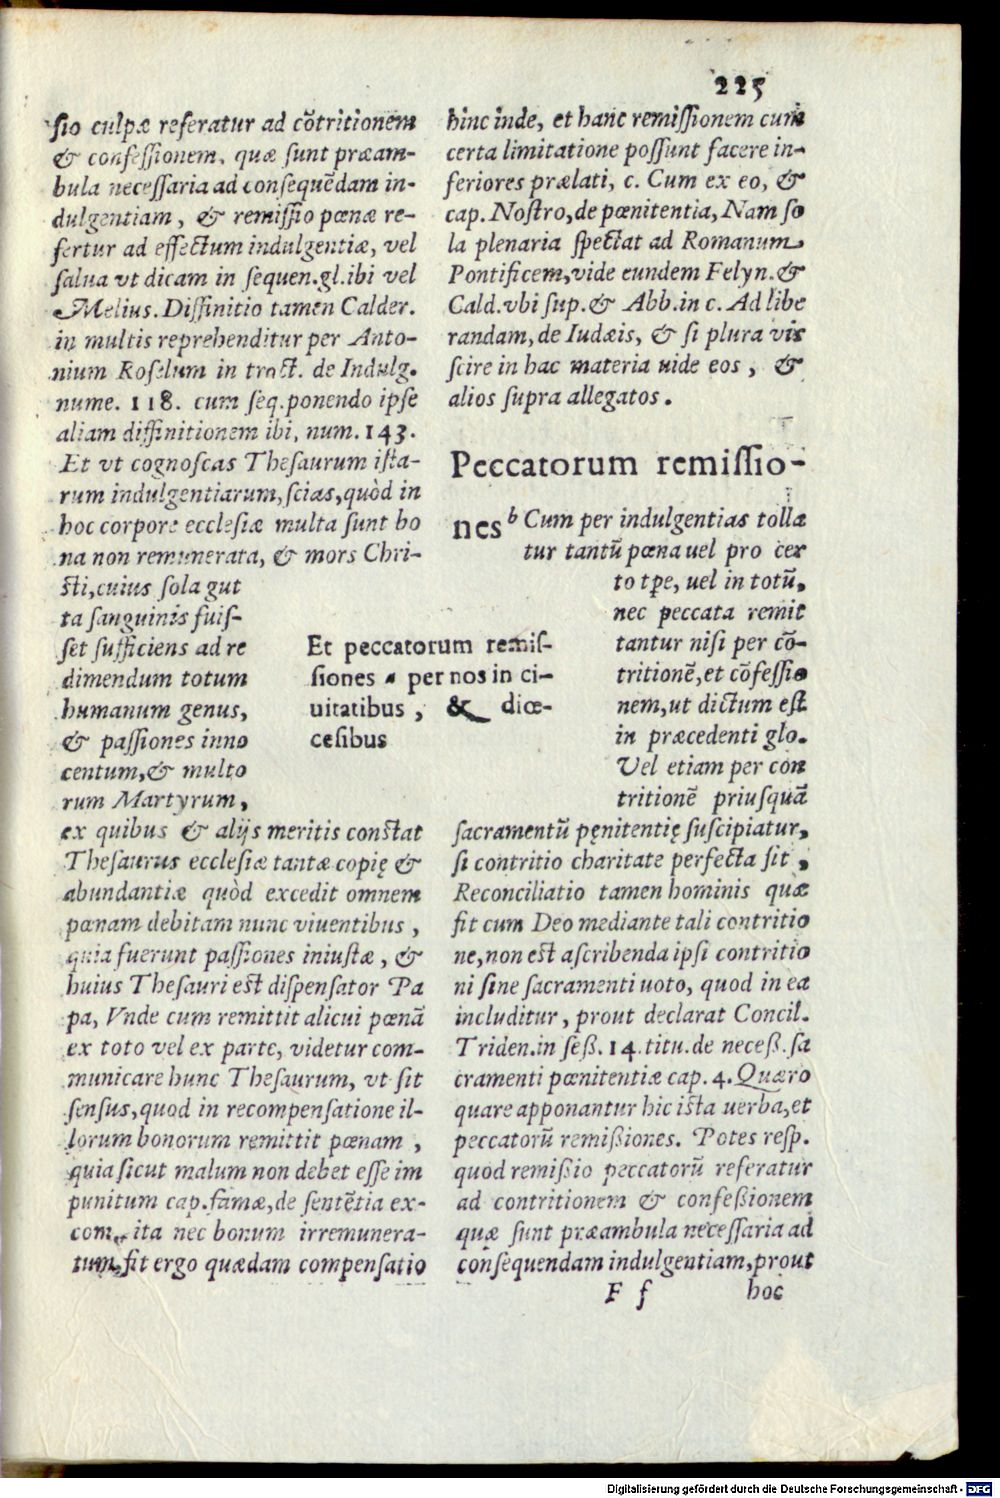 225
sio culpæ referatur ad cõtritionem
& confessionem, quæ sunt præam-
bula necessaria ad consequẽdam in-
dulgentiam, & remissio pœnæ re-
fertur ad effectum indulgentiæ, vel
salua vt dicam in sequen.gl.ibi vel
Melius. Diffinitio tamen Calder.
in multis reprehenditur per Anto-
nium Roselum in tract. de Indulg.
nume. 118. cum seq.ponendo ipse
aliam diffinitionem ibi, num.143.
Et vt cognoscas Thesaurum ista-
rum indulgentiarum,scias,quòd in
hoc corpore ecclesiæ multa sunt bo
na non remunerata, & mors Chri-
sti,cuius sola gut
ta sanguinis fuis-
set sufficiens ad re
dimendum totum
humanum genus,
& passiones inno
centum,& multo
rum Martyrum,
ex quibus & alijs meritis constat
Thesaurus ecclesiæ tantæ copię &
abundantiæ quòd excedit omnem
pœnam debitam nunc viuentibus,
quia fuerunt passiones iniustæ, &
huius Thesauri est dispensator Pa
pa, Vnde cum remittit alicui pœnã
ex toto vel ex parte, videtur com-
municare hunc Thesaurum, vt sit
sensus,quod in recompensatione il-
lorum bonorum remittit pœnam,
quia sicut malum non debet esse im
punitum cap.famæ,de sentẽtia ex-
com. ita nec bonum irremunera-
tum,fit ergo quædam compensatio
Et peccatorum remis-
siones per nos in ci-
uitatibus, & diœ-
cesibus
hinc inde, et hanc remissionem cum
certa limitatione possunt facere in-
feriores prælati, c. Cum ex eo, &
cap. Nostro,de pœnitentia, Nam so
la plenaria spectat ad Romanum
Pontificem,vide eundem Felyn.&
Cald.vbi sup.& Abb.in c. Ad libe
randam, de Iudæis, & si plura vis
scire in hac materia uide eos, &
alios supra allegatos.
Peccatorum remissio-
nes b Cum per indulgentias tolla
tur tantũ pœna uel pro cer
to tpe, uel in totũ,
nec peccata remit
tantur nisi per cõ-
tritionẽ,et cõfessio
nem,ut dictum est
in præcedenti glo.
Vel etiam per con
tritionẽ priusquã
sacramentũ pęnitentię suscipiatur,
si contritio charitate perfecta sit,
Reconciliatio tamen hominis quæ
fit cum Deo mediante tali contritio
ne,non est ascribenda ipsi contritio
ni sine sacramenti uoto, quod in ea
includitur, prout declarat Concil.
Triden.in seß. 14.titu.de neceß.sa
cramenti pœnitentiæ cap.4.Quæro
quare apponantur hic ista uerba,et
peccatorũ remißiones. Potes resp.
quod remißio peccatorũ referatur
ad contritionem & confeßionem
quæ sunt præambula necessaria ad
consequendam indulgentiam,prout
F f hoc
Digitalisierung gefördert durch die Deutsche Forschungsgemeinschaft - DFG